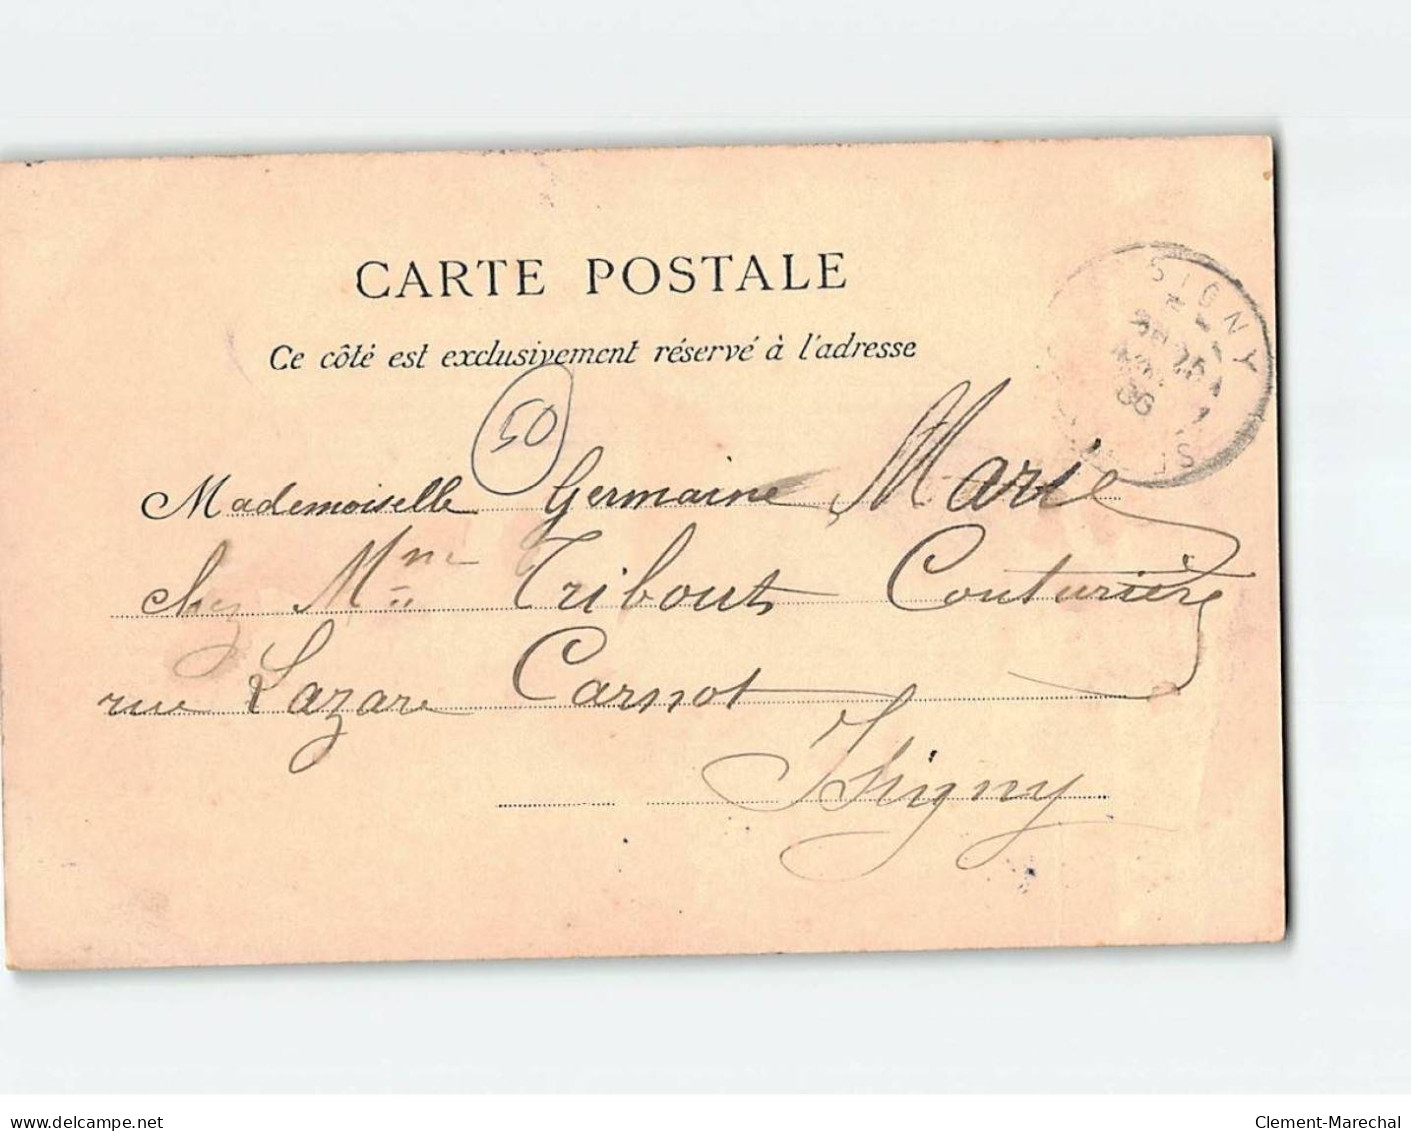 CARTE POSTALE
Ce côté est exclusivement réservé à l'adresse
SIGNY
50
Mademoiselle Germaine Marie
chez Mme Tribout Couturière
rue Lazare Carnot
Isigny
www.delcampe.net
Clement-Marechal